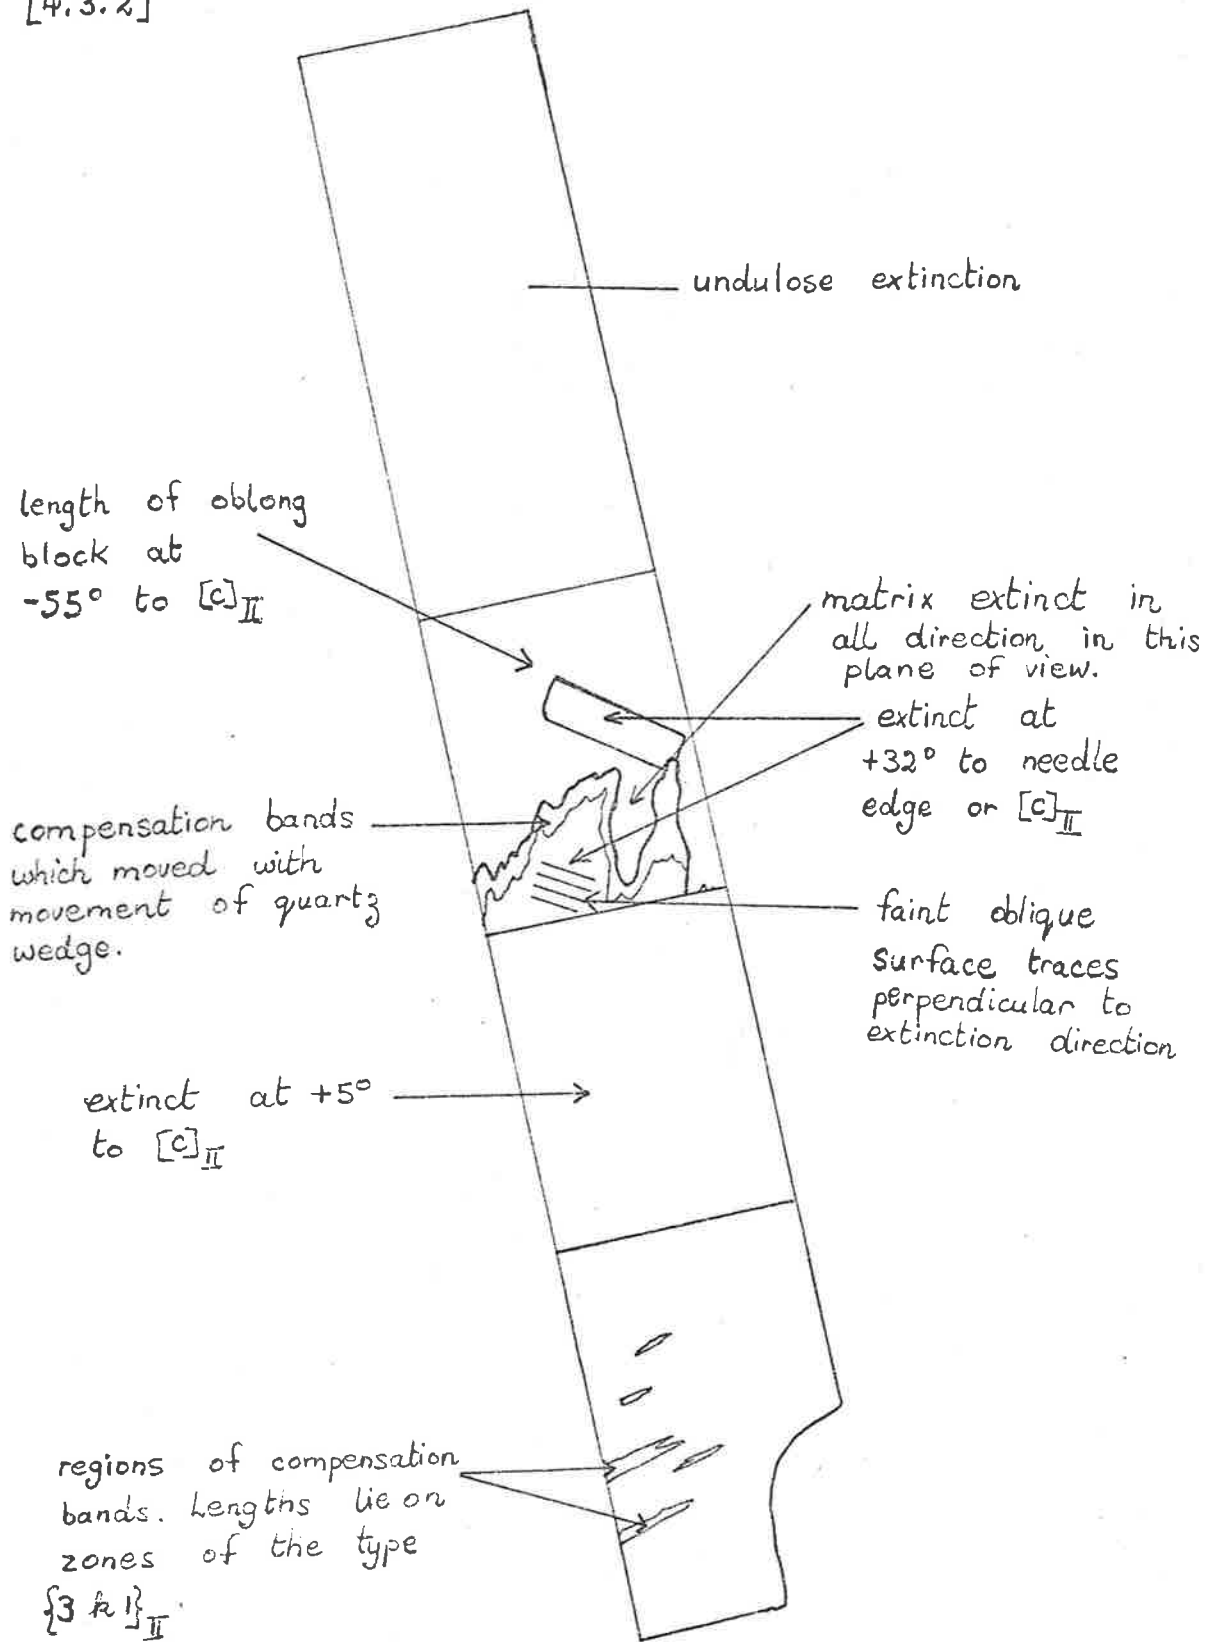 [4.3.2]
undulose extinction
length of oblong
block at
-55° to [c]II
matrix extinct in
all direction in this
plane of view.
extinct at
+32° to needle
edge or [c]II
compensation bands
which moved with
movement of quartz
wedge.
faint oblique
surface traces
perpendicular to
extinction direction
extinct at +5°
to [c]II
regions of compensation
bands. Lengths lie on
zones of the type
{3 k 1}II.